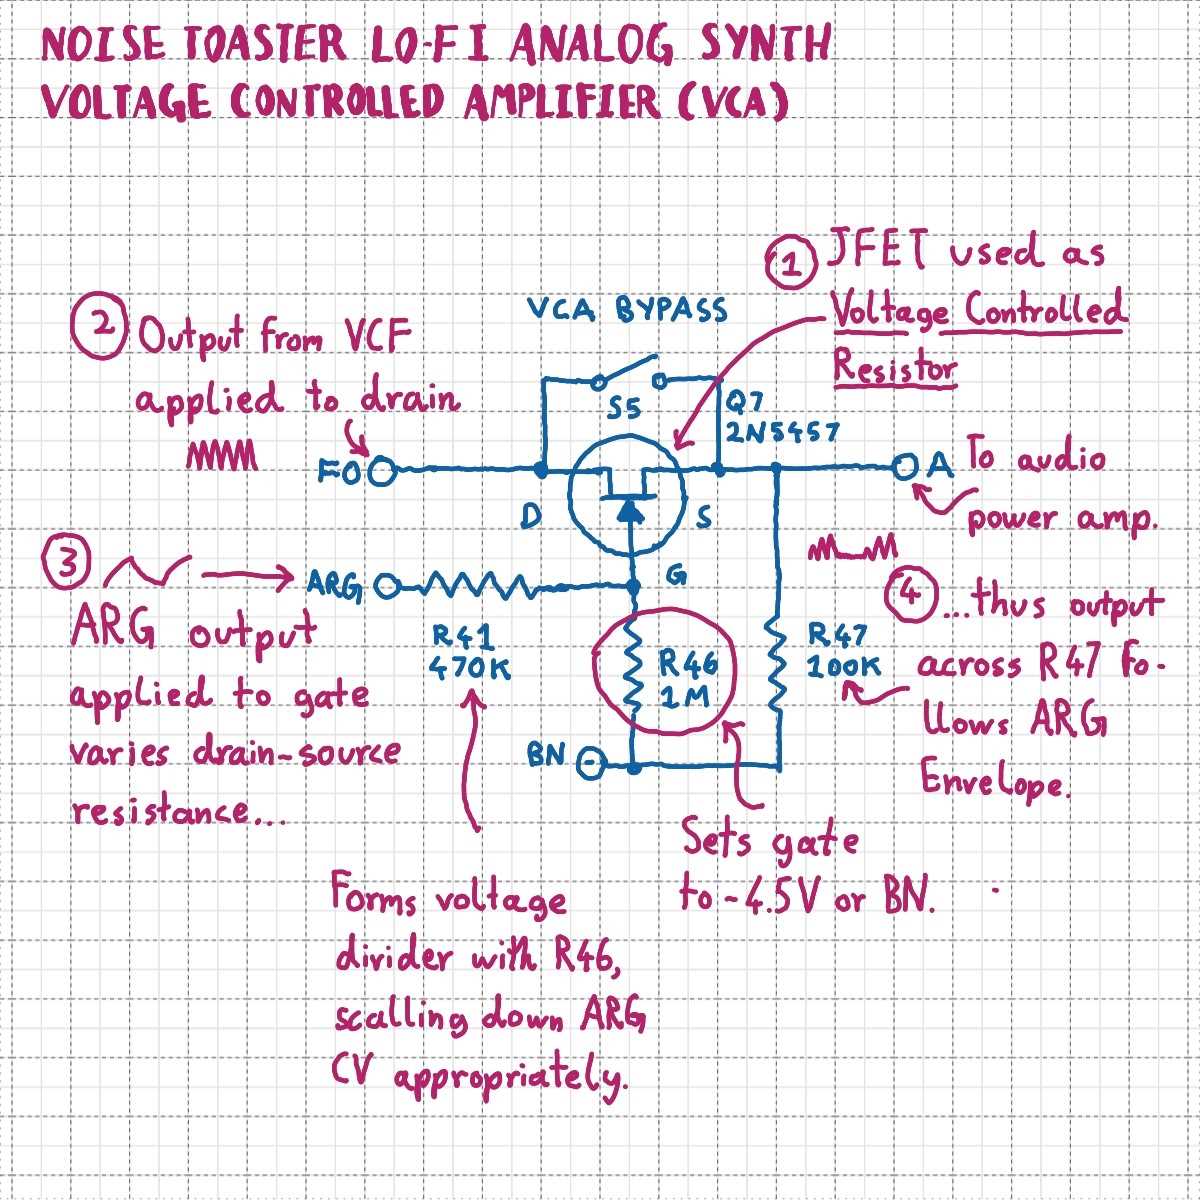 NOISE TOASTER LO-FI ANALOG SYNTH
VOLTAGE CONTROLLED AMPLIFIER (VCA)
1 JFET used as
Voltage Controlled
Resistor
2 Output from VCF
applied to drain
VCA BYPASS
S5
Q7
2N5457
FO
D
S
G
A
To audio
power amp.
3
ARG
ARG output
applied to gate
varies drain-source
resistance...
R41
470K
R46
1M
R47
100K
BN
-
4 ...thus output
across R47 fo-
llows ARG
Envelope.
Sets gate
to -4.5V or BN.
Forms voltage
divider with R46,
scalling down ARG
CV appropriately.